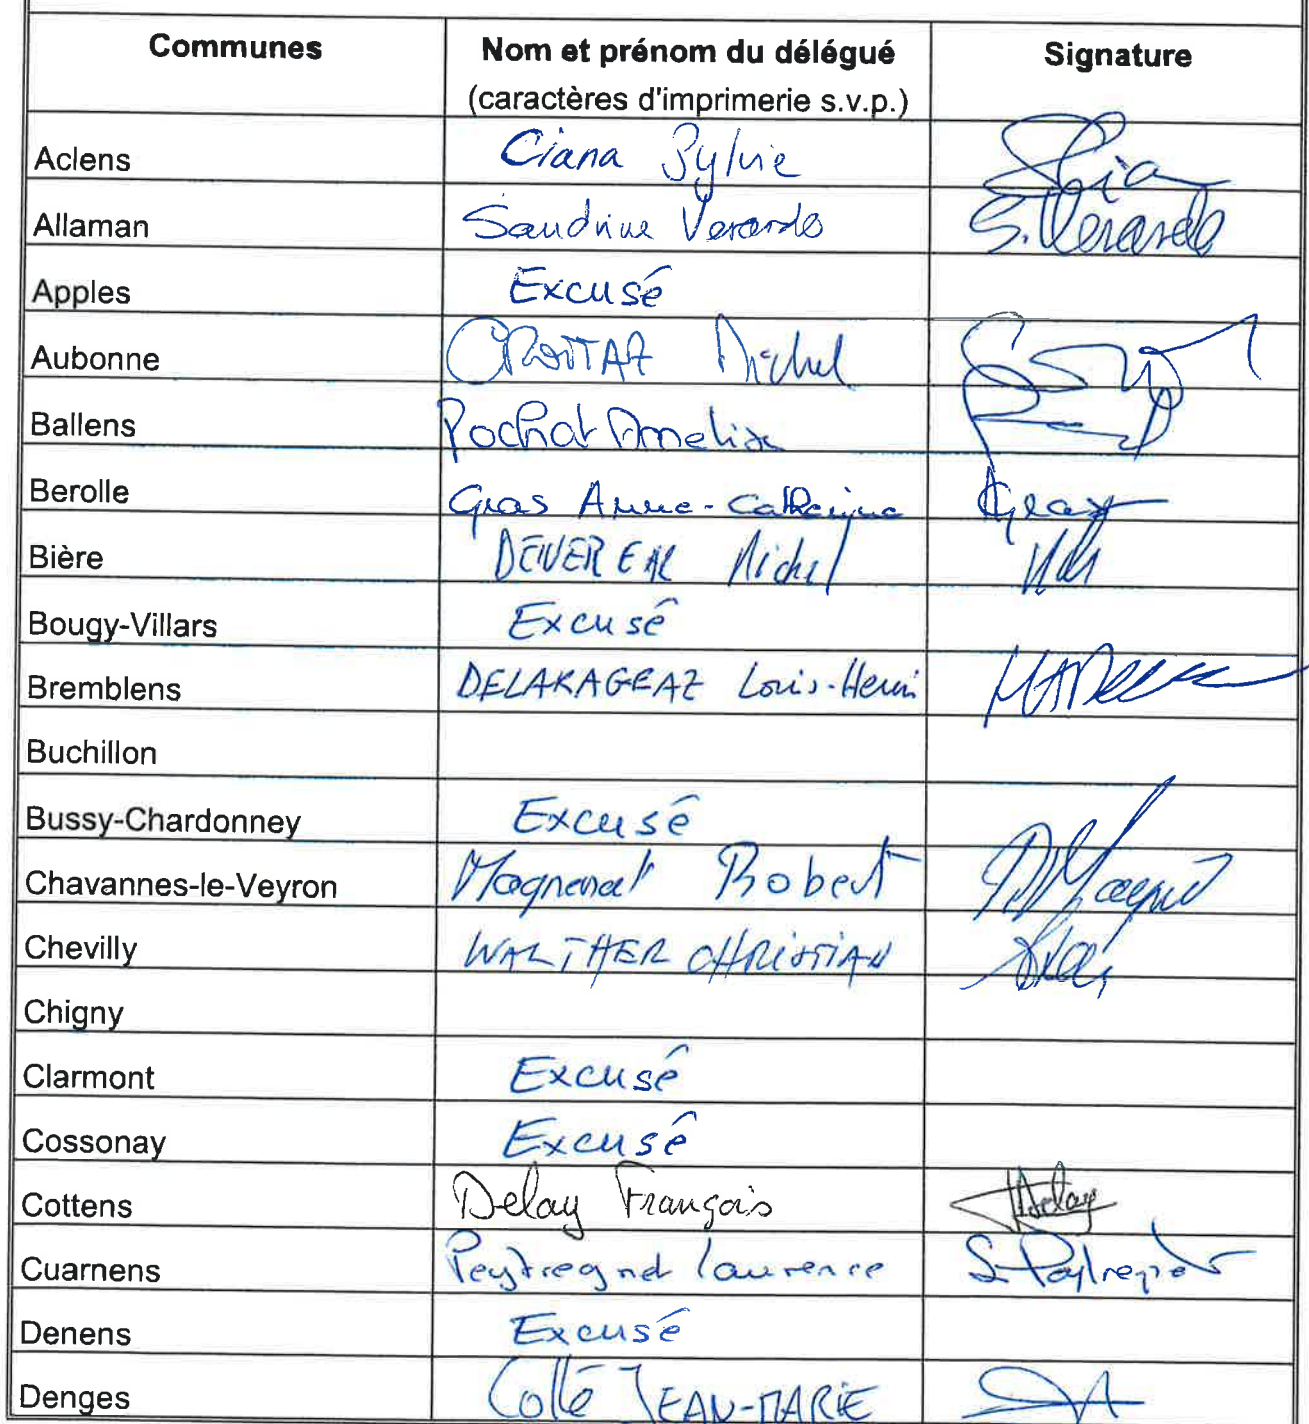 Communes Nom et prénom du délégué Signature
(caractères d'imprimerie s.v.p.)
Aclens Ciana Sylvie
Allaman Sandrine Verardo S. Verardo
Apples Excusé
Aubonne CROTTAZ Michel
Ballens Pochat Amélie
Berolle Gras Anne-Catherine AGras
Bière Michel
Bougy-Villars Excusé
Bremblens DELARAGEAZ Louis-Henri
Buchillon
Bussy-Chardonney Excusé
Chavannes-le-Veyron Magnenat Robert
Chevilly WALTHER CHRISTIAN
Chigny
Clarmont Excusé
Cossonay Excusé
Cottens Delay François Delay
Cuarnens Peytregnet Laurence Peytregnet
Denens Excusé
Denges Collé JEAN-MARIE